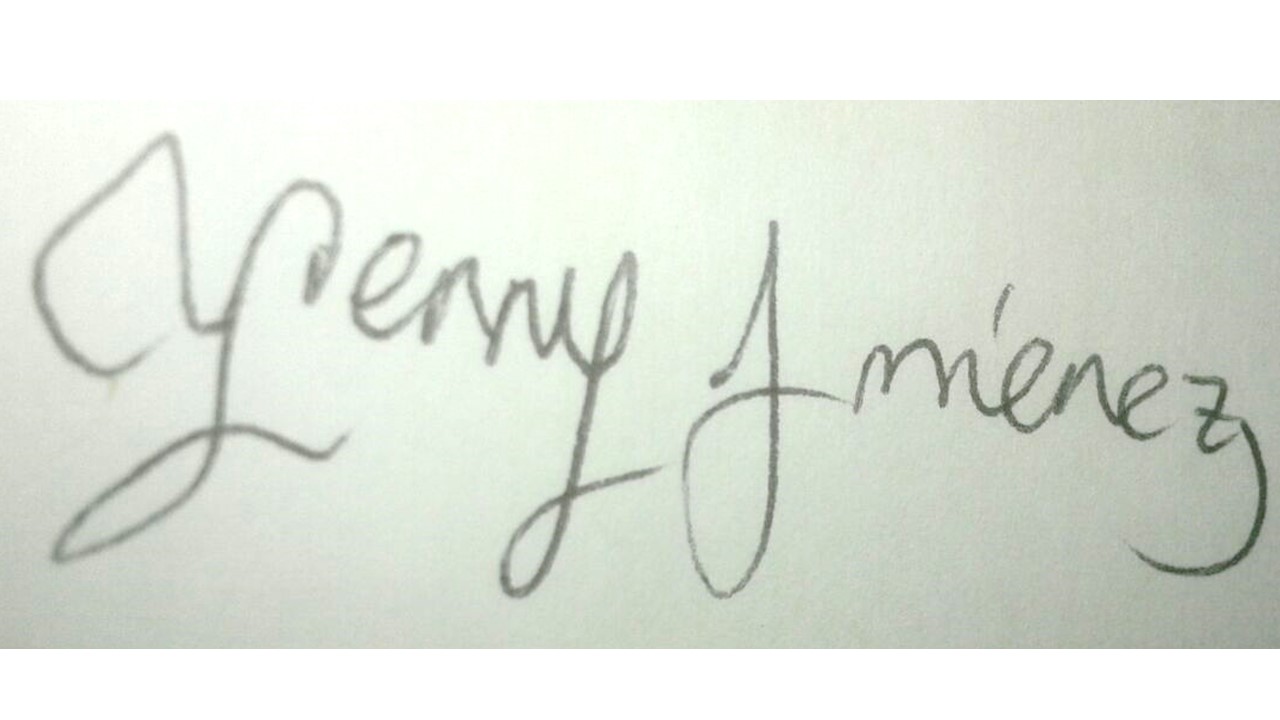 Yenny Jimenez